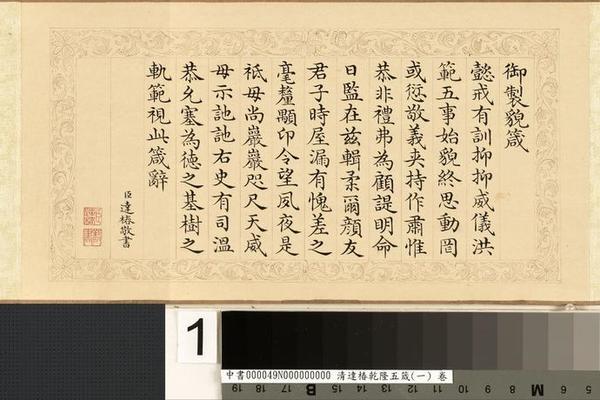 御製貌箴
懿戒有訓抑抑威儀洪
範五事始貌終思動罔
或愆敬義夾持作肅惟
恭非禮弗為顧諟明命
日監在茲輯柔爾顏友
君子時屋漏有愧差之
毫釐顒卬令望夙夜是
祗毋尚巖巖咫尺天威
毋示訑訑右史有司溫
恭允塞為德之基樹之
軌範視此箴辭
臣達椿敬書
1
中書000049N000000000 清達椿乾隆五箴(一) 卷